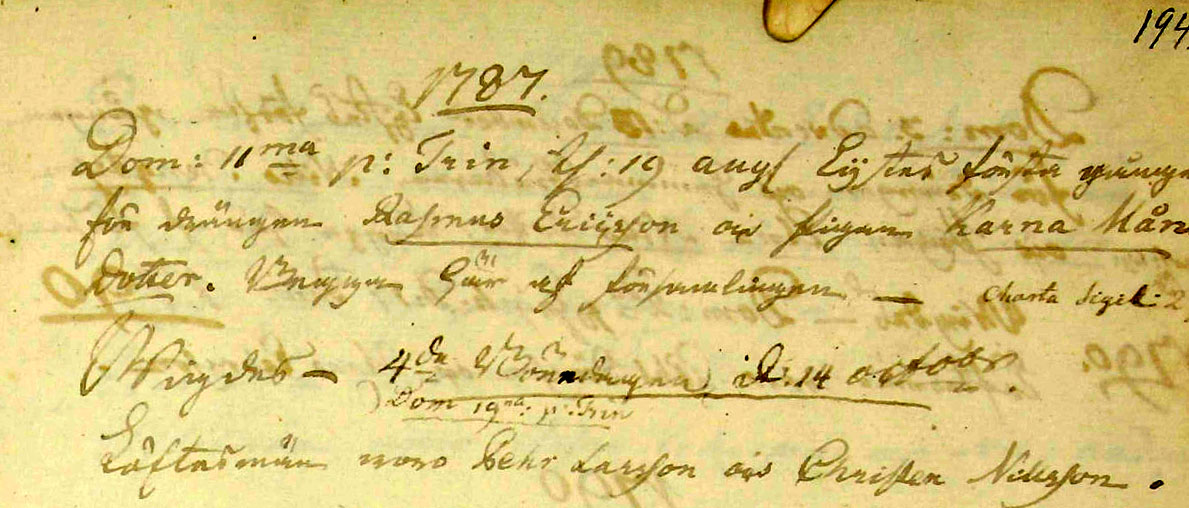 194
1787.
Dom: 11ma p: Trin, d: 19 aug Lystes första gången
för drängen Rasmus Ericsson och pigan Karna Måns
dotter. Begge här af församlingen — Charta Sigil: 2
Wigdes — 4de Bönedagen, d: 14 octobr.
(Dom 19na: p: Trin
Löftesmän woro Pehr Larsson och Christen Nilsson.